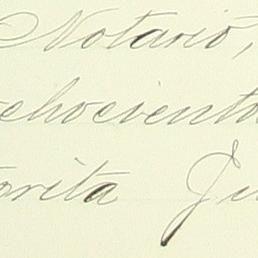 Notario,
chocientos
rita Ju